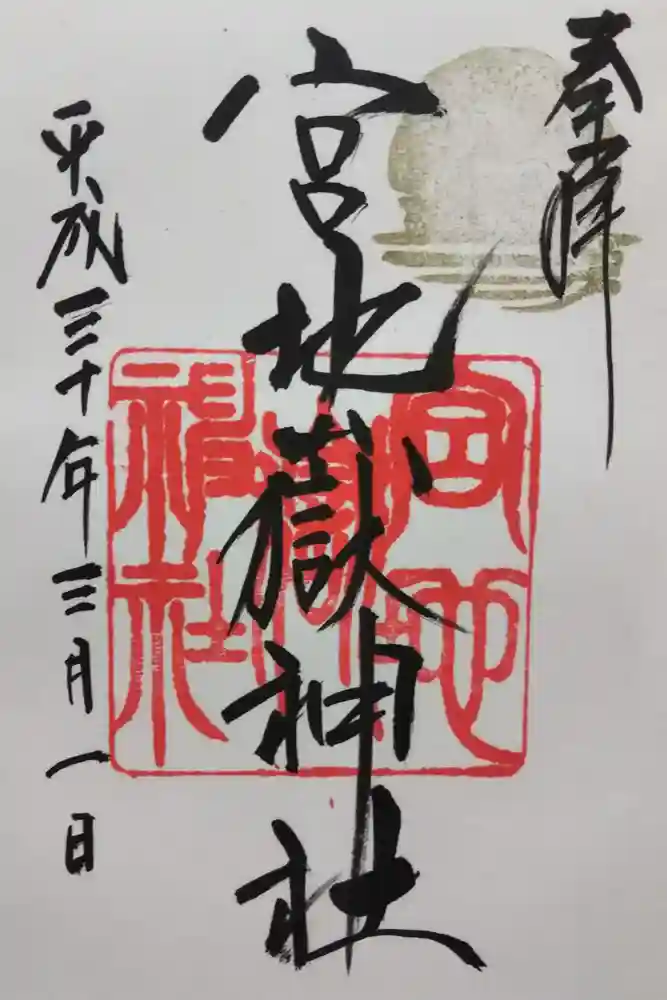 奉拝
宮地嶽神社
宮地
嶽
神社
平成三十年三月一日